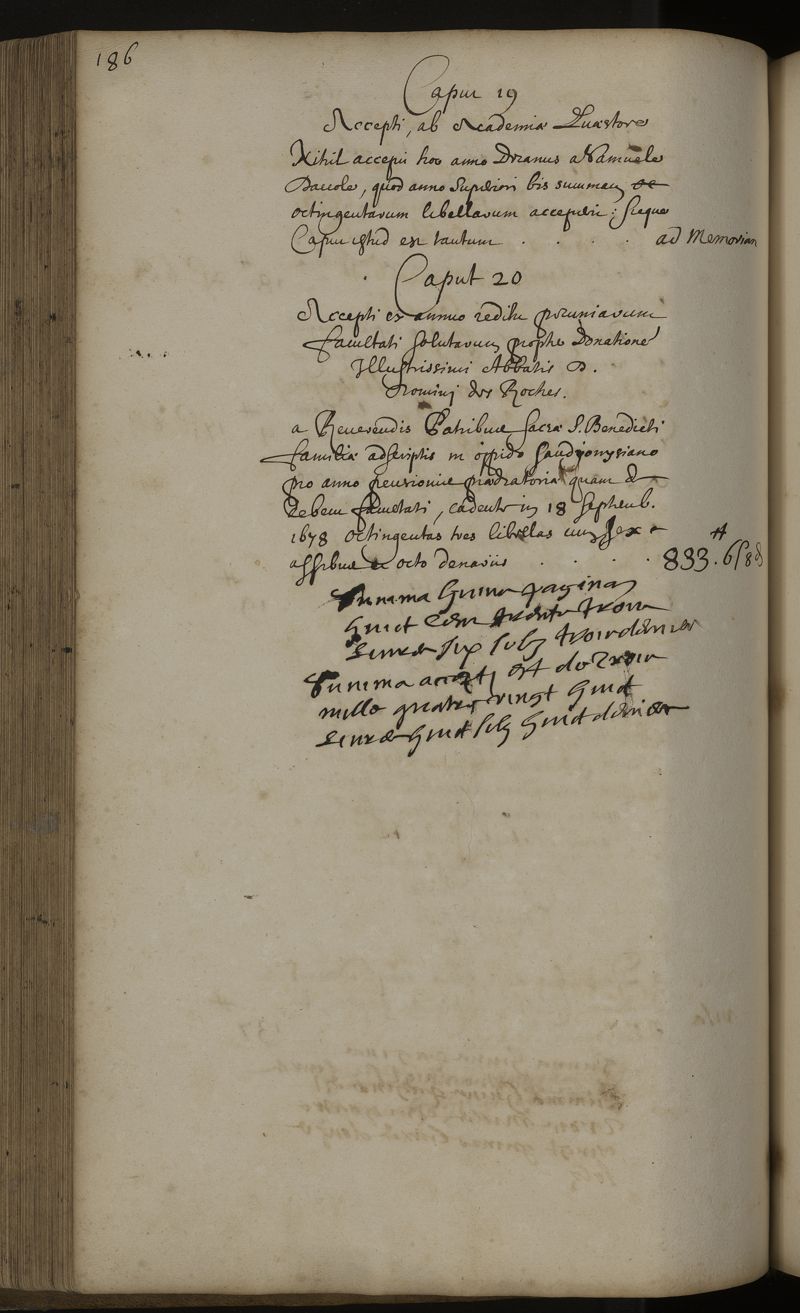 186
Caput 19
Accepti, ab Academiæ Quæstore
Nihil accepi hoc anno Decanus a Samuele
Dacole, quod anno superiori bis summam
octingentarum libellarum acceperit; sicque
Caput istud est tantum . . . . ad Memoriam
Caput 20
Accepti ex annuo reditu pecuniarum
facultati solutarum, propter Donatione
Illustrissimi Abbatis D.
Domini des Roches.
a Reverendis Patribus sacræ S. Benedicti
familiæ adscriptis in oppido sandyonysiano
pro anno pensionis quam
debent facultati, cadente in 18 septemb.
1678 octingentas tres libellas cum sex
assibus et octo denariis . . . . 833 ₶. 6 s 8 d
Summa huius paginæ
huict cent trente trois
livres six solz trois deniers
Summa accepti est de trois
mille quatre vingt huict
livres huict solz huict deniers